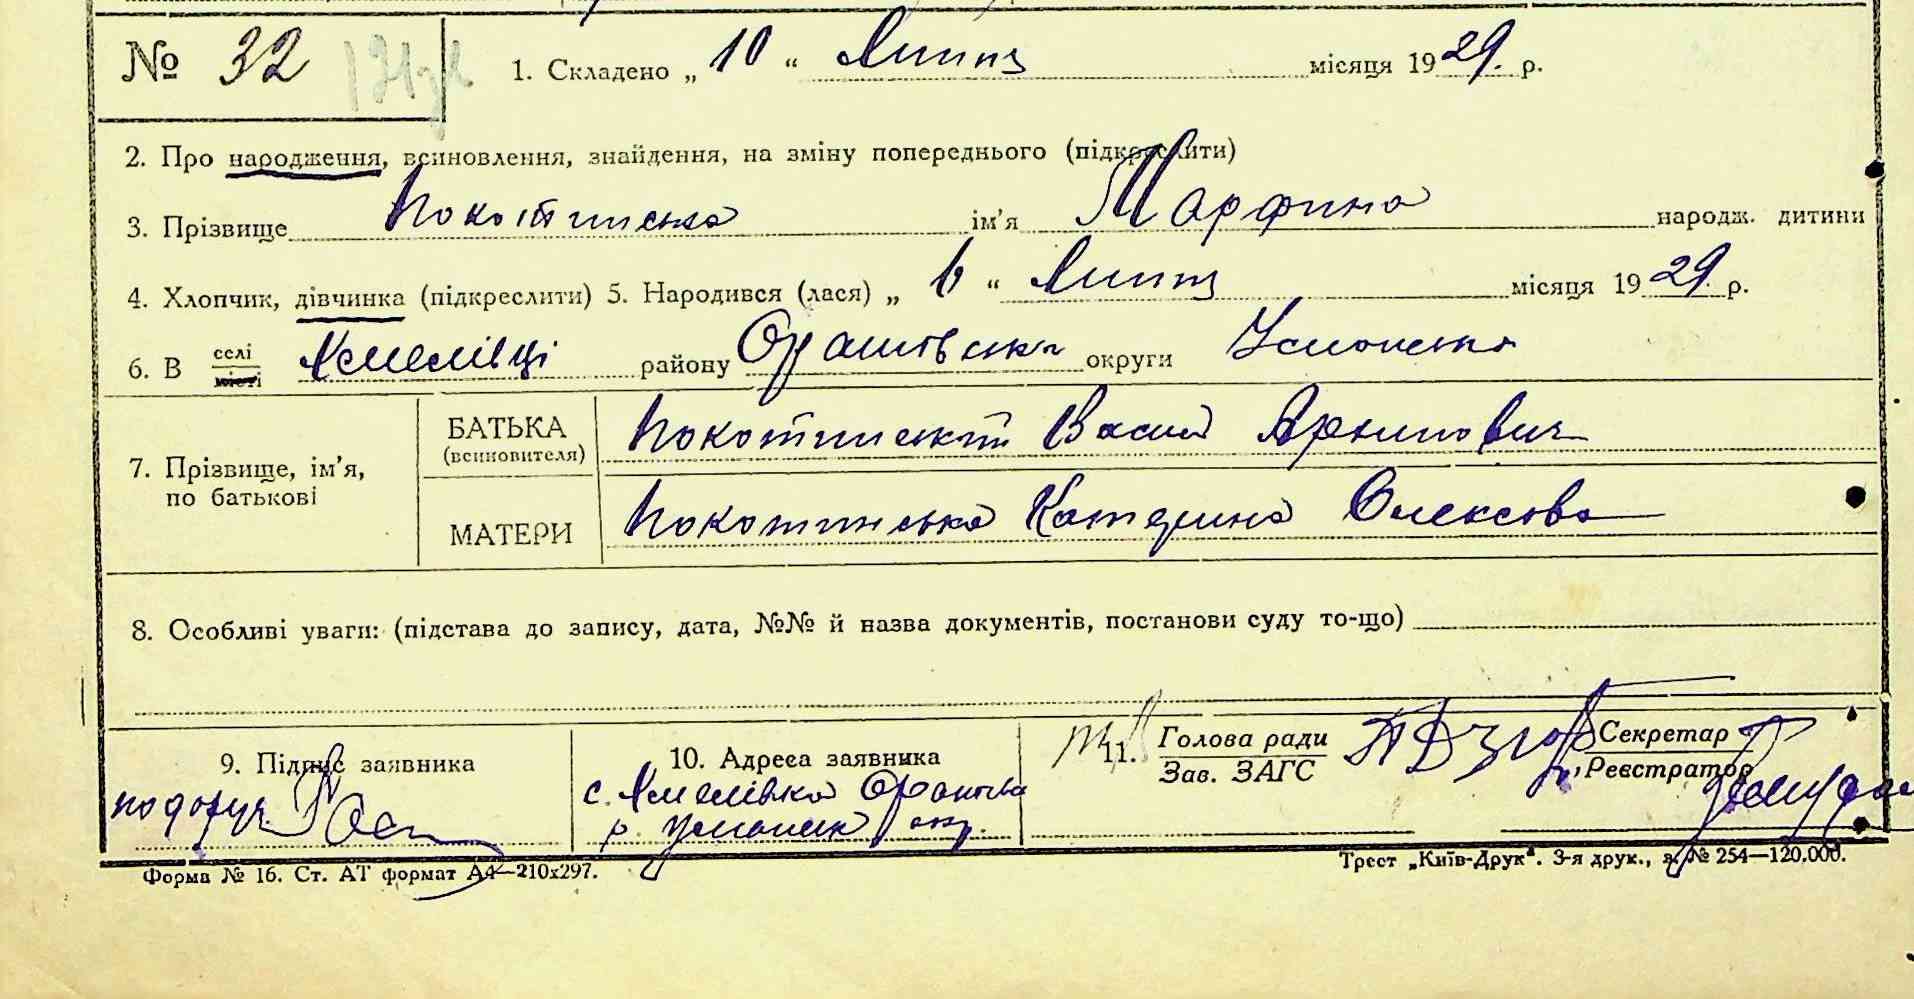 № 32
1. Складено „ 10 “ Липня місяця 1929. р.
2. Про народження, всиновлення, знайдення, на зміну попереднього (підкреслити)
3. Прізвище Покотинська ім'я Марфина народж. дитини
4. Хлопчик, дівчинка (підкреслити) 5. Народився (лася) „ 6 “ Липня місяця 1929. р.
6. В селі місті Хмелівці району Оратівська округи Уманська
7. Прізвище, ім'я, по батькові
БАТЬКА (всиновителя) Покотинський Василь Архипович
МАТЕРИ Покотинська Катерина Олексова
8. Особливі уваги: (підстава до запису, дата, №№ й назва документів, постанови суду то-що)
9. Підпис заявника
10. Адреса заявника
11. Голова ради Секретар
Зав. ЗАГС Реєстратор
с. Хмелівка
р. Уманск окр.
Форма № 16. Ст. АТ формат А4—210х297.
Трест „Київ-Друк“. 3-я друк., з. № 254—120.000.